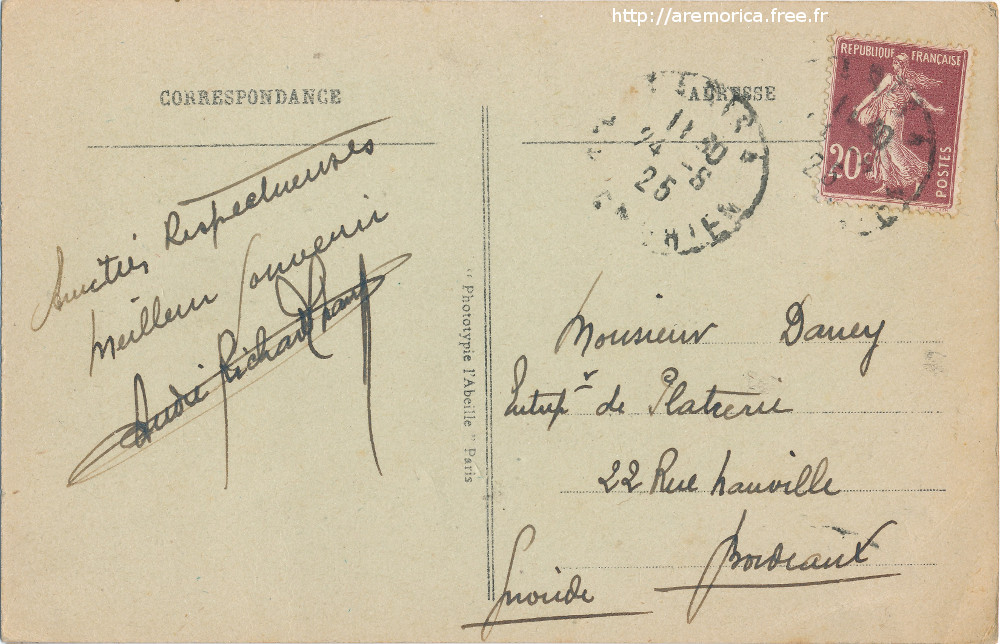 http://aremorica.free.fr
CORRESPONDANCE
Amitiés Respectueuses
Meilleur Souvenir
André Richard
" Phototypie l'Abeille " Paris
ADRESSE
REPUBLIQUE FRANÇAISE
20c
POSTES
11 30
24 -8
25
Monsieur Daney
Entrepr de Platrerie
22 Rue Nauville
Bordeaux
Gironde